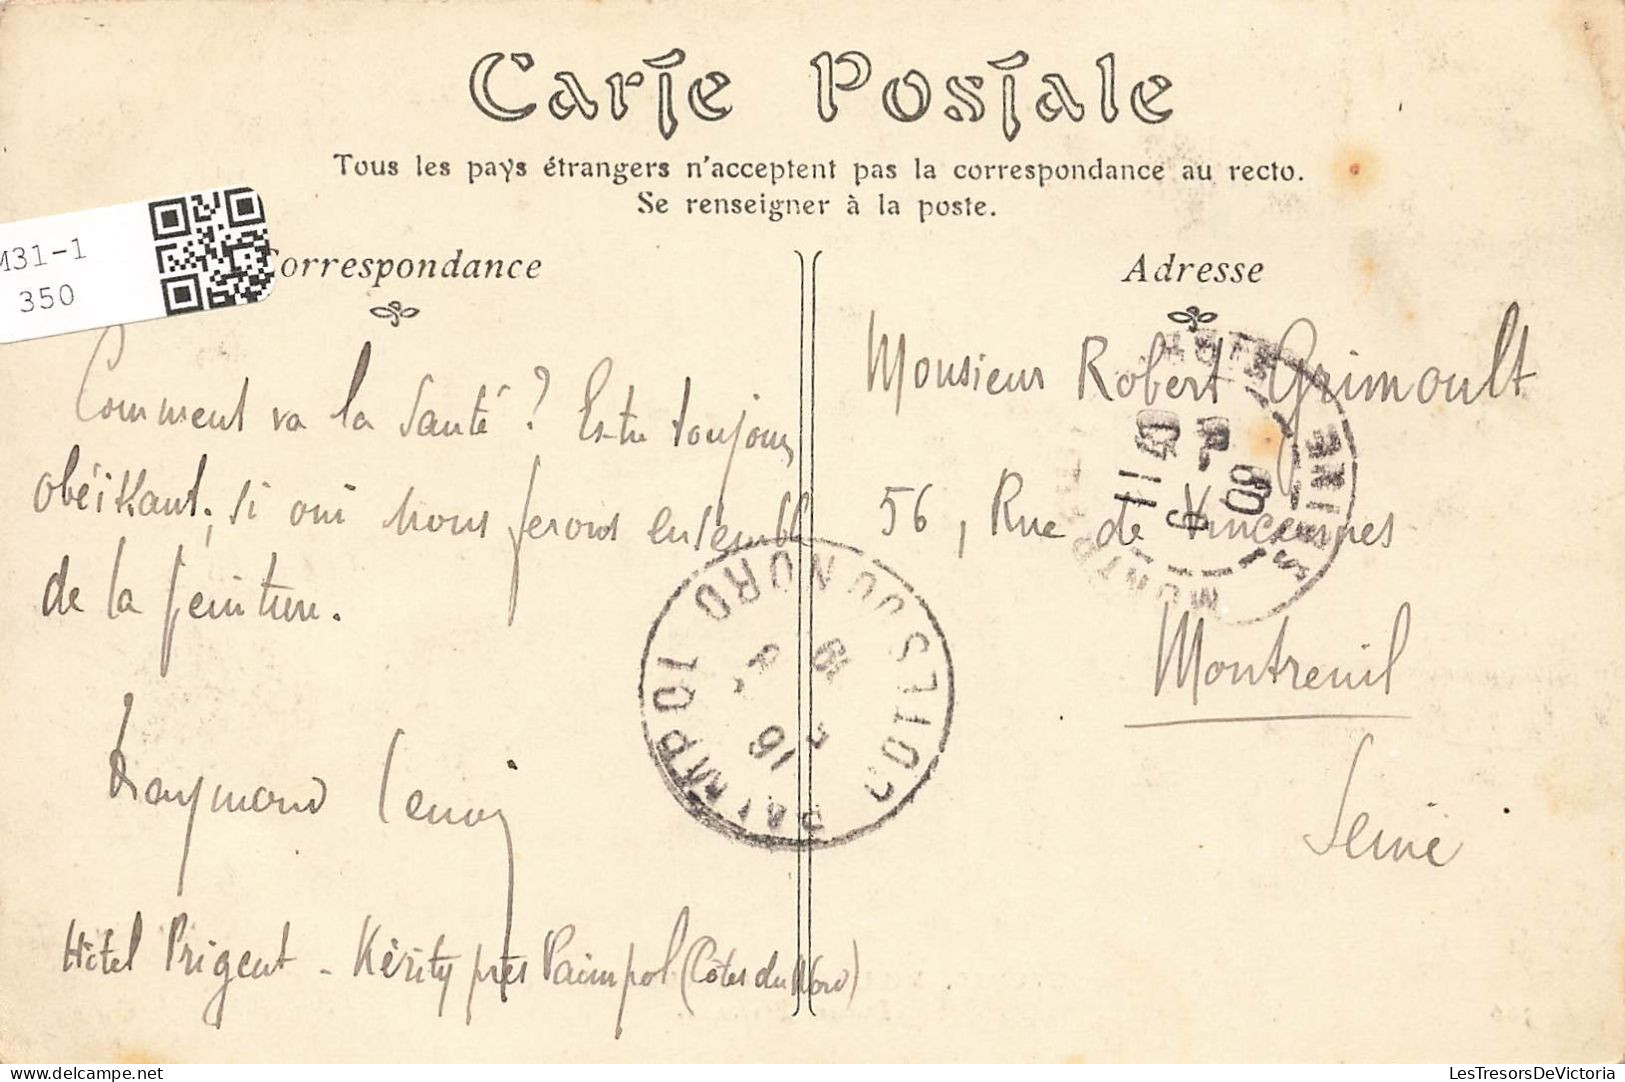 Carte Postale
Tous les pays étrangers n'acceptent pas la correspondance au recto.
Se renseigner à la poste.
M31-1
350
Correspondance
Adresse
Comment va la santé ? Es-tu toujours
obéissant ; si oui nous ferons ensemble
de la peinture.
Raymond Lenoir
Hôtel Prigent - Kérity près Paimpol (Côtes du Nord)
Monsieur Robert Grimoult
56, Rue de Vincennes
Montreuil
Seine
PAIMPOL
COTES DU NORD
16
11 40
09
LesTresorsDeVictoria
www.delcampe.net